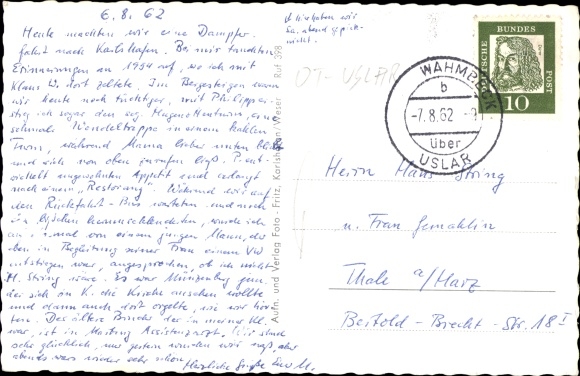 6.8.62
Heute machten wir eine Dampfer-
fahrt nach Karlshafen. Bei mir tauchten
Erinnerungen an 1954 auf, wo ich mit
Klaus W. dort zeltete. Im Bergsteigen waren
wir heute noch tüchtiger, mit Philipp er-
stieg ich sogar den sog. Hugenottenturm, eine
schmale Wendeltreppe in einem kahlen
Turm, während Mama lieber unten blieb
und sich von oben zurufen ließ. P. ent-
wickelt ungewohnten Appetit und verlangt
nach einem „Restoring". Während wir auf
den Rückfahrt-Bus warteten und noch
ein bißchen herumschlenderten, wurde ich
auf einmal von einem jungen Mann, der
eben in Begleitung seiner Frau einem VW
entstiegen war, angesprochen, ob ich nicht
H. String wäre. Es war Münzenberg jun.,
der sich in K. die Kirche ansehen wollte
und dann auch dort orgelte, wie wir hör-
ten. Der ältere Bruder, der in meiner Kl.
war, ist in Marburg Assistenzarzt. Wir sind
sehr glücklich, nur gestern wurden wir naß, aber
abends war wieder sehr schön.
Herzliche Grüße Euer M.
wir
Sa. abend
nicht.
OT-USLAR
Aufn. und Verlag Foto-Fritz, Karlshafen/Weser Ruf 398
DEUTSCHE BUNDESPOST
10
WAHMBECK
b
-7.8.62
über
USLAR
Herrn Hans String
u. Frau Gemahlin
Thale a/Harz
Bertold-Brecht-Str. 18 I